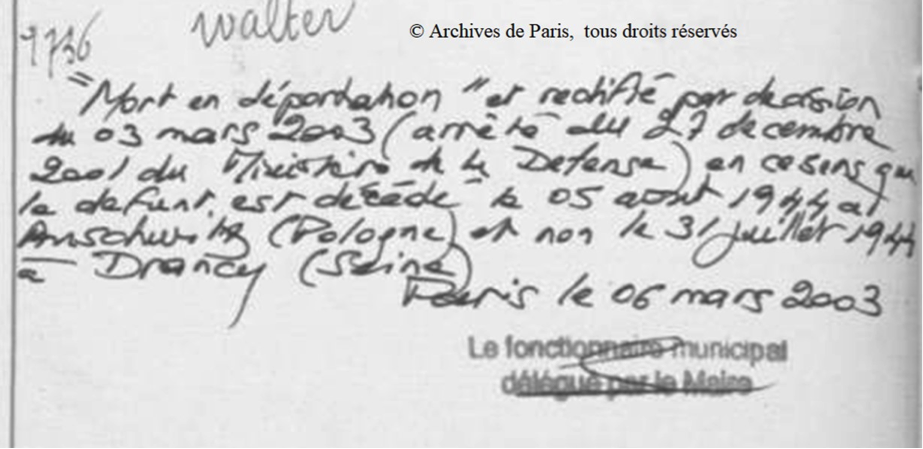 walter
© Archives de Paris, tous droits réservés
1736
"Mort en déportation" et rectifié par decision
du 03 mars 2003 (arrêté du 27 decembre
2001 du Ministère de la Defense) en ce sens que
le defunt est décédé le 05 aout 1944 at
Auschwitz (Pologne) et non le 31 juillet 1944
à Drancy (Seine)
Paris le 06 mars 2003
Le fonctionnaire municipal
délégué par le Maire